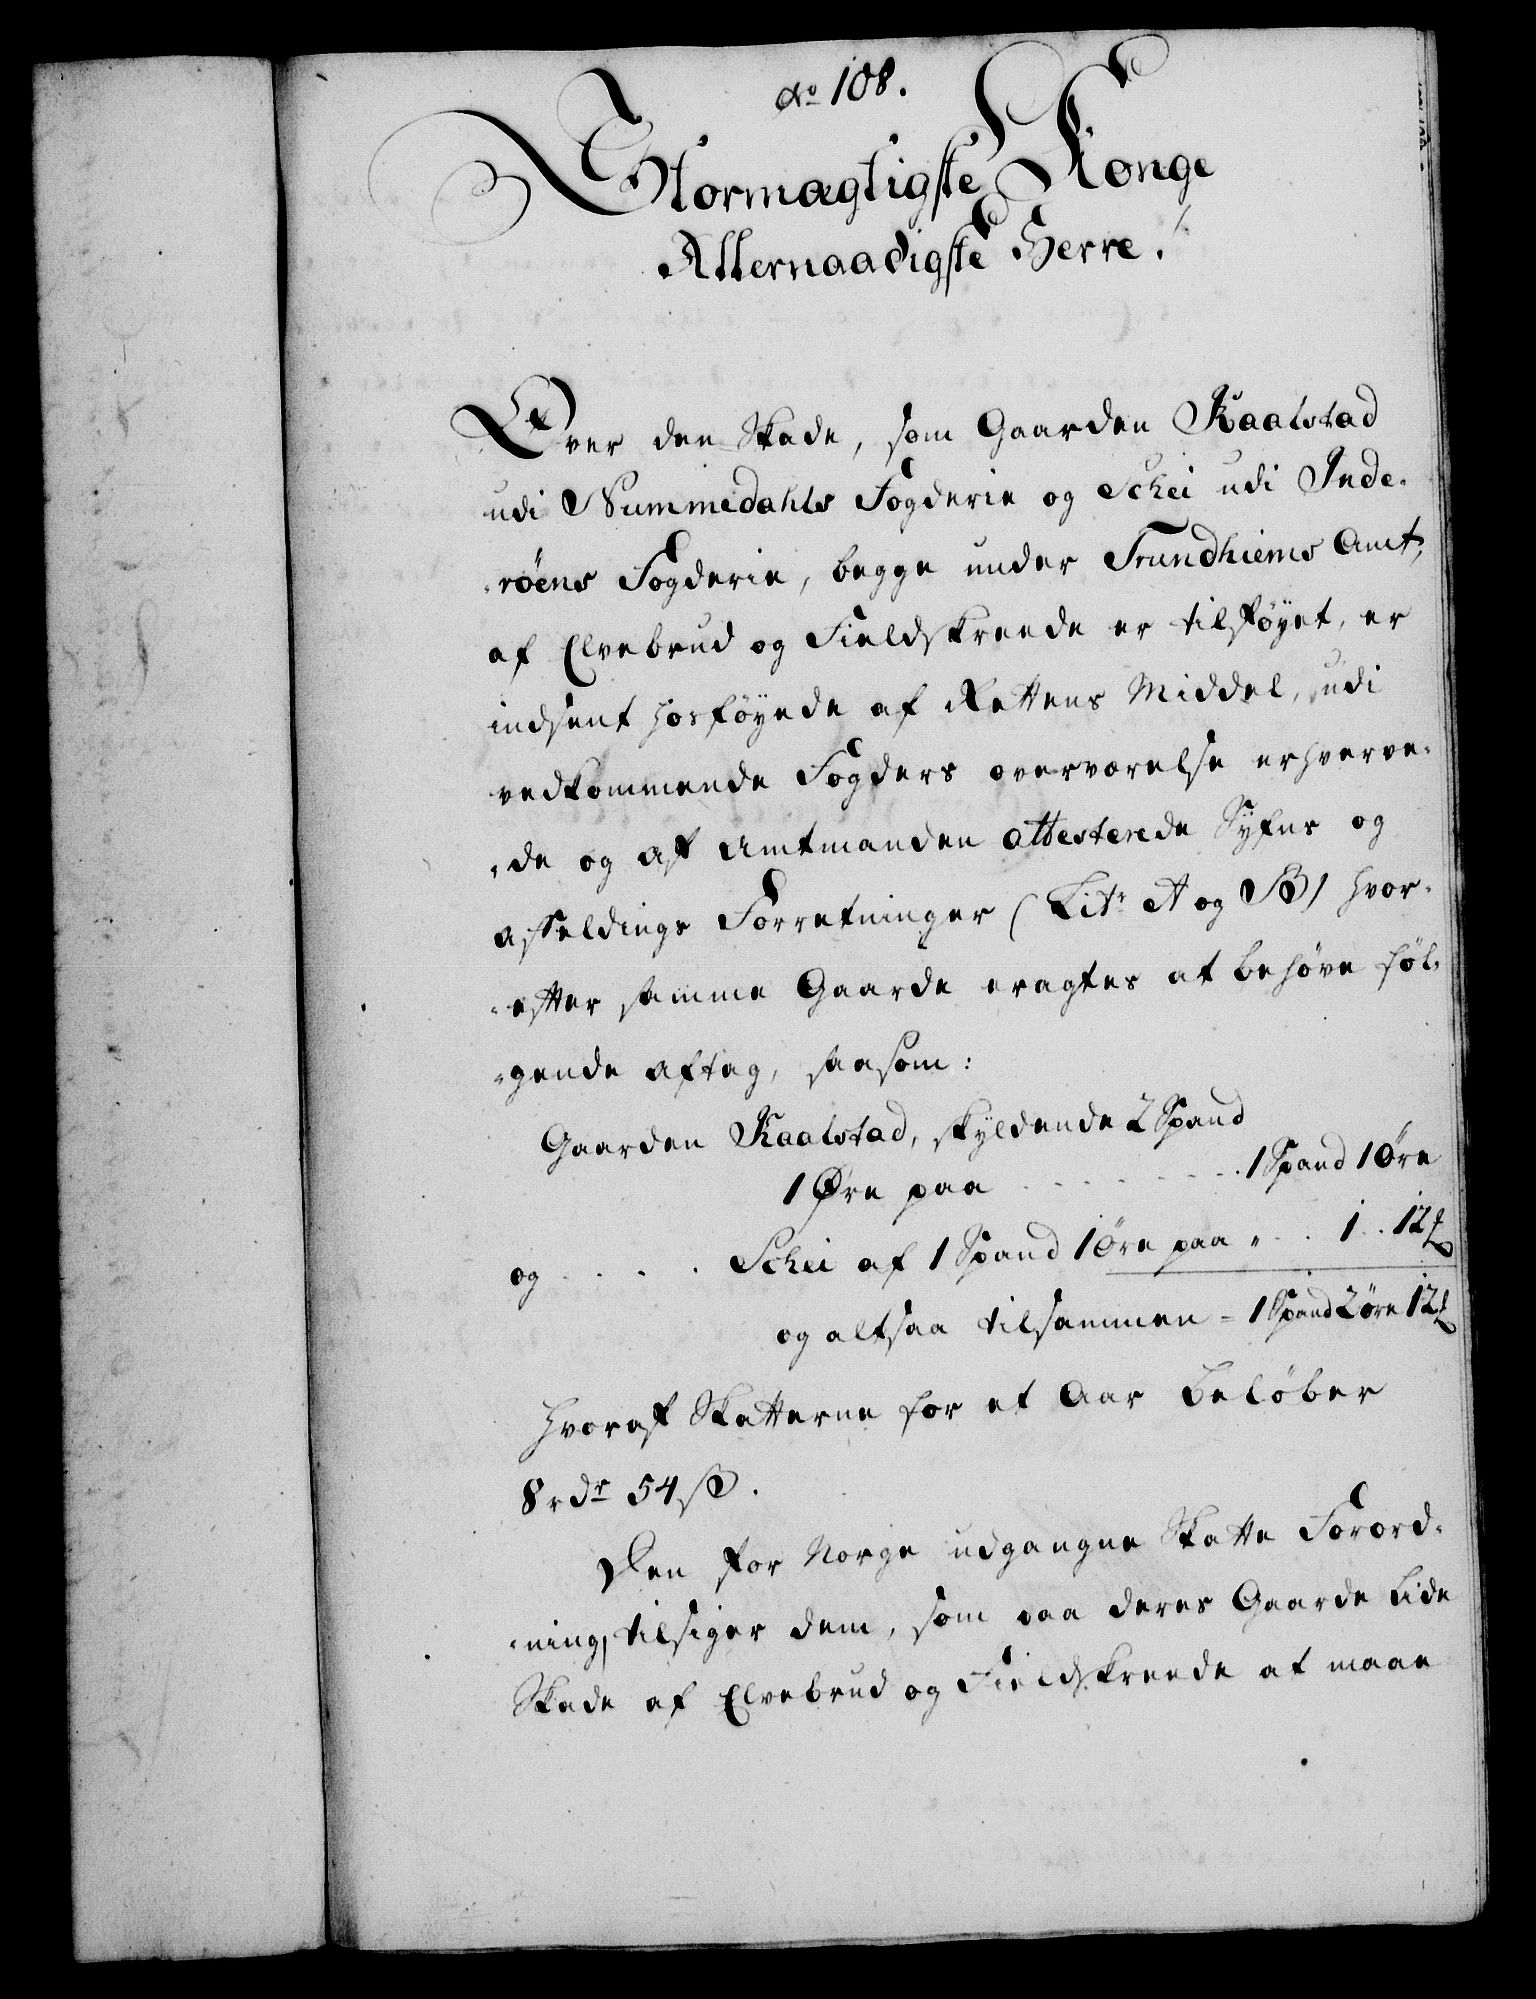 No 108.
Stormægtigste Konge
Allernaadigste Herre!
Over den Skade, som Gaarden Kaalstad
udi Nummedahls Fogderie og Schei udi Inde-
-röens Fogderie, begge under Trundhiems Amt,
af Elvebrud og Fieldskreede er tilföyet, er
indsent hosföyede af Rettens Middel, udi
vedkommende Fogders overværelse erhverve-
-de og af Amtmanden attesterede Syfns og
affældings Forretninger (Litr. A og B) hvor-
-efter samme Gaarde eragtes at behöve föl-
-gende aftag, saasom:
Gaarden Kaalstad, skyldende 2 Spand
1 Øre paa . . . . . . . 1 Spand 1 Öre
og . . . . Schei af 1 Spand 1 öre paa " . . 1 . . 12 ℔
og altsaa tilsammen = 1 Spand 2 öre 12 ℔
hvoraf Skatterne for et Aar beløber
8 rdr 54 ß.
Den for Norge udgangne Skatte Forord-
-ning, tilsiger dem, som paa deres Gaarde lide
Skade af Elvebrud og Fieldskreede at maae